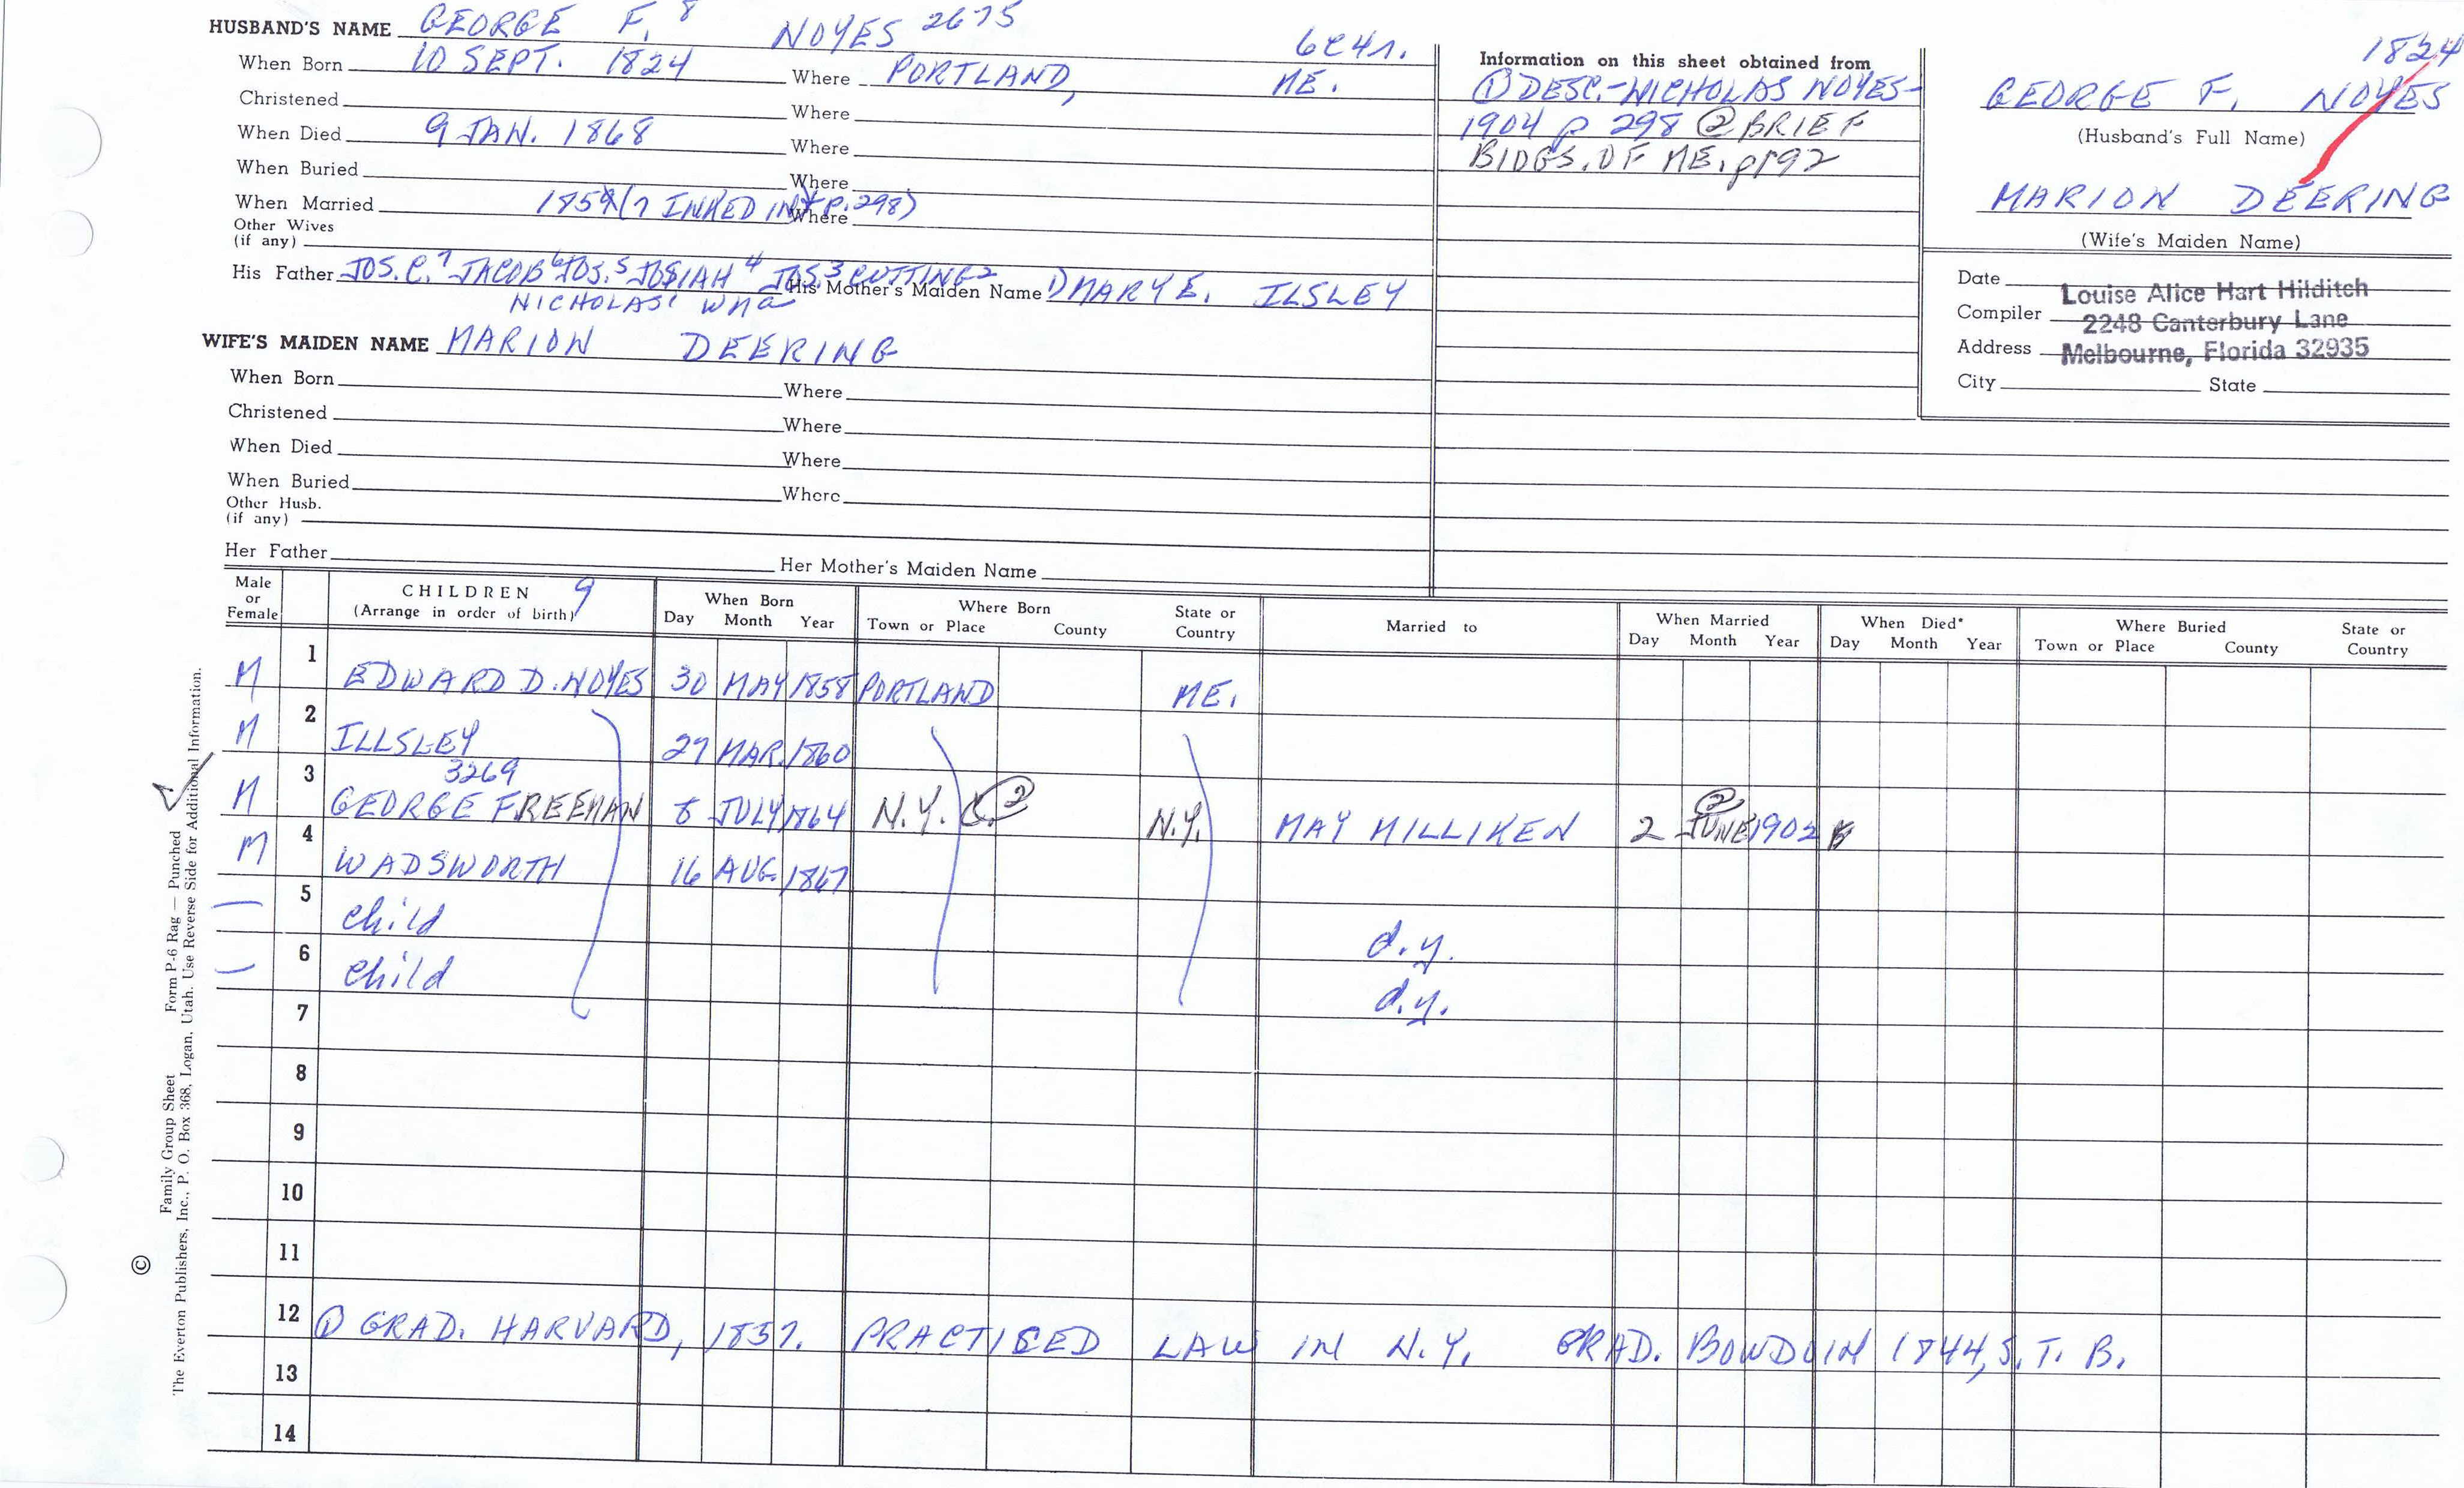 HUSBAND'S NAME GEORGE F. 8 NOYES 2675 6ch.
When Born 10 SEPT. 1824 Where PORTLAND, ME.
Christened Where
When Died 9 JAN. 1868 Where
When Buried Where
When Married (7 INKED IN p. 298) Where
Other Wives
(if any)
His Father JOS. C.7 JACOB6 JOS.5 JOSIAH4 JOS.3 CUTTING2 His Mother's Maiden Name 1) MARY E. ILSLEY
NICHOLAS1 Wm a
WIFE'S MAIDEN NAME MARION DEERING
When Born Where
Christened Where
When Died Where
When Buried Where
Other Husb.
(if any)
Her Father Her Mother's Maiden Name
Information on this sheet obtained from
① DESC.-NICHOLAS NOYES-
1904 p 298 ② BRIEF
BIOGS. OF ME. p192
1824
GEORGE F. NOYES
(Husband's Full Name)
MARION DEERING
(Wife's Maiden Name)
Date
Louise Alice Hart Hilditch
Compiler 2248 Canterbury Lane
Address Melbourne, Florida 32935
City State
Male or Female CHILDREN 9 (Arrange in order of birth) When Born Day Month Year Where Born Town or Place County State or Country Married to When Married Day Month Year When Died* Day Month Year Where Buried Town or Place County State or Country
M 1 EDWARD D. NOYES 30 MAY 1858 PORTLAND ME.
M 2 ILLSLEY 27 MAR. 1860
3269
M 3 GEORGE FREEMAN 8 JULY 1864 N.Y. C. ② N.Y. MAY MILLIKEN 2 JUNE ② 1902
M 4 WADSWORTH 16 AUG. 1867
— 5 child d.y.
— 6 child d.y.
7
8
9
10
11
12 ① GRAD. HARVARD, 1857. PRACTICED LAW IN N.Y. GRAD. BOWDOIN 1844, S. T. B.
13
14
Family Group Sheet Form P-6 Rag — Punched
© The Everton Publishers, Inc., P. O. Box 368, Logan, Utah. Use Reverse Side for Additional Information.